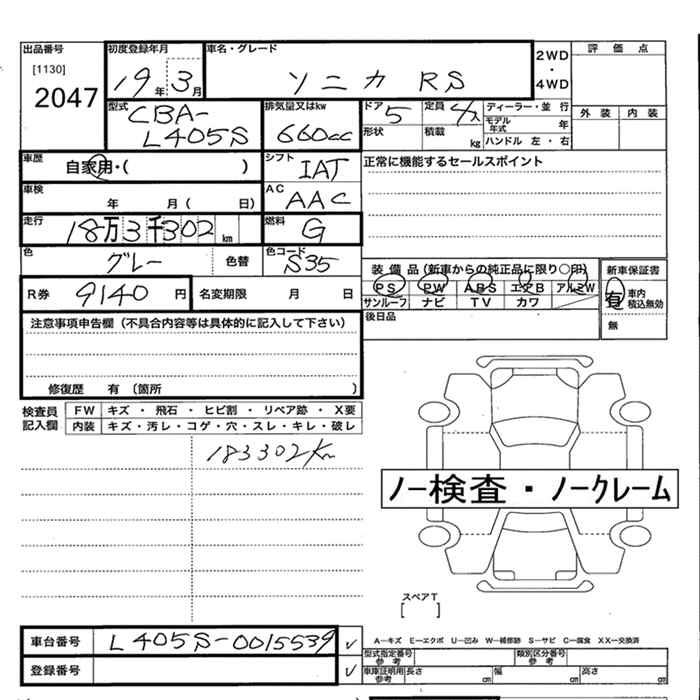 出品番号 初度登録年月 車名・グレード 2WD・4WD 評価点
[1130] 19年 3月 ソニカ RS
2047
型式 CBA-L405S 排気量又はkw 660cc ドア 5 形状 定員 4人 積載 kg ディーラー・並行 モデル年式 年 ハンドル 左・右 外装 内装
車歴 自家用・( ) シフト IAT 正常に機能するセールスポイント
車検 年 月( 日) AC AAC
走行 18万3千302km 燃料 G
色 グレー 色替 色コード S35
装備品(新車からの純正品に限り○印) 新車保証書
PS PW ABS エアB アルミW 有 車内積込無効
サンルーフ ナビ TV カワ
R券 9140円 名変期限 月 日 後日品 無
注意事項申告欄(不具合内容等は具体的に記入して下さい)
修復歴 有 (箇所 )
検査員記入欄 FW キズ・飛石・ヒビ割・リペア跡・X要
内装 キズ・汚レ・コゲ・穴・スレ・キレ・破レ
183302km
ノー検査・ノークレーム
スペアT
[ ]
車台番号 L405S-0015539
A-キズ E-エクボ U-凹み W-補修跡 S-サビ C-腐食 XX-交換済
型式指定番号 参考 類別区分番号 参考
登録番号 車庫証明用参考 長さ cm 幅 cm 高さ cm